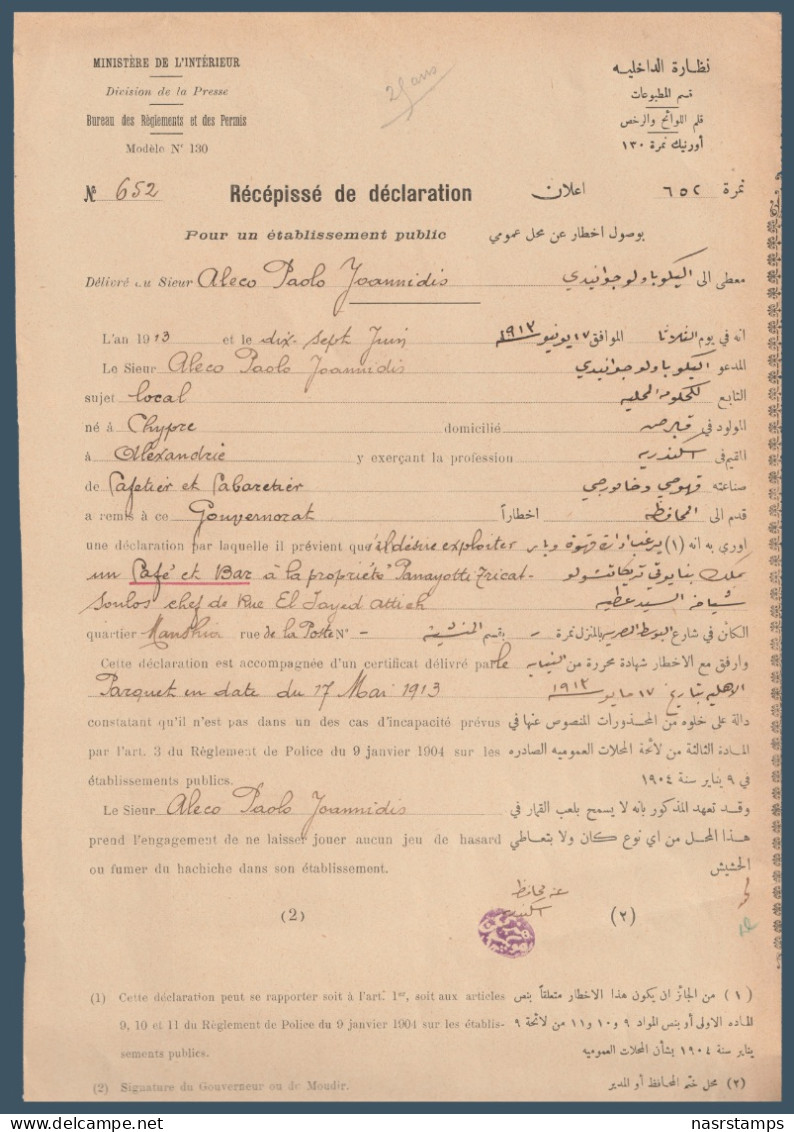 MINISTÈRE DE L'INTÉRIEUR
Division de la Presse
Bureau des Règlements et des Permis
Modèle N° 130
25 ans
نظارة الداخليه
قسم المطبوعات
قلم اللوائح والرخص
أورنيك نمرة ١٣٠
№ 652
Récépissé de déclaration
اعلان
نمرة ٦٥٢
Pour un établissement public
بوصول اخطار عن محل عمومي
Délivré au Sieur Aleco Paolo Joannidis
معطى الى اليكو باولو جوانيدي
L'an 1913 et le dix-sept Juin
انه في يوم الثلاثا الموافق ١٧ يونيو سنة ١٩١٣
Le Sieur Aleco Paolo Joannidis
المدعو اليكو باولو جوانيدي
sujet local
التابع للحكومه المحليه
né à Chypre domicilié
المولود في قبرص
à Alexandrie y exerçant la profession
المقيم في اسكندريه
de Cafetier et Cabaretier
صناعته قهوجي وخمورجي
a remis à ce Gouvernorat
قدم الى المحافظه اخطاراً
une déclaration par laquelle il prévient qu'il désire exploiter
اوري به انه (١) يرغب ادارة قهوة وبار
un Café et Bar à la propriété Panayotti Tricat-
بملك بنايوتي تريكاتسولو
soulos chef de Rue El Sayed Attieh
شياخة السيد عطيه
quartier Manshia rue de la Poste N° -
الكائن في شارع البوسطه المصريه بالمنزل نمرة - بقسم المنشية
Cette déclaration est accompagnée d'un certificat délivré par le
وارفق مع الاخطار شهادة محررة من النيابه
Parquet en date du 17 Mai 1913
الاهليه بتاريخ ١٧ مايو سنة ١٩١٣
constatant qu'il n'est pas dans un des cas d'incapacité prévus
دالة على خلوه من المحذورات المنصوص عنها في
par l'art. 3 du Règlement de Police du 9 janvier 1904 sur les
المادة الثالثة من لائحة المحلات العموميه الصادره
établissements publics.
في ٩ يناير سنة ١٩٠٤
Le Sieur Aleco Paolo Joannidis
وقد تعهد المذكور بانه لا يسمح بلعب القمار في
prend l'engagement de ne laisser jouer aucun jeu de hasard
هذا المحل من اي نوع كان ولا بتعاطي
ou fumer du hachiche dans son établissement.
الحشيش
عن محافظ
اسكندريه
(2)
(٢)
(1) Cette déclaration peut se rapporter soit à l'art. 1er, soit aux articles
9, 10 et 11 du Règlement de Police du 9 janvier 1904 sur les établis-
sements publics.
(١) من الجائز ان يكون هذا الاخطار متعلقاً بنص
الماده الاولى أو بنص المواد ٩ و ١٠ و ١١ من لائحة ٩
يناير سنة ١٩٠٤ بشأن المحلات العموميه
(2) Signature du Gouverneur ou de Moudir.
(٢) محل ختم المحافظ أو المدير
nasrstamps